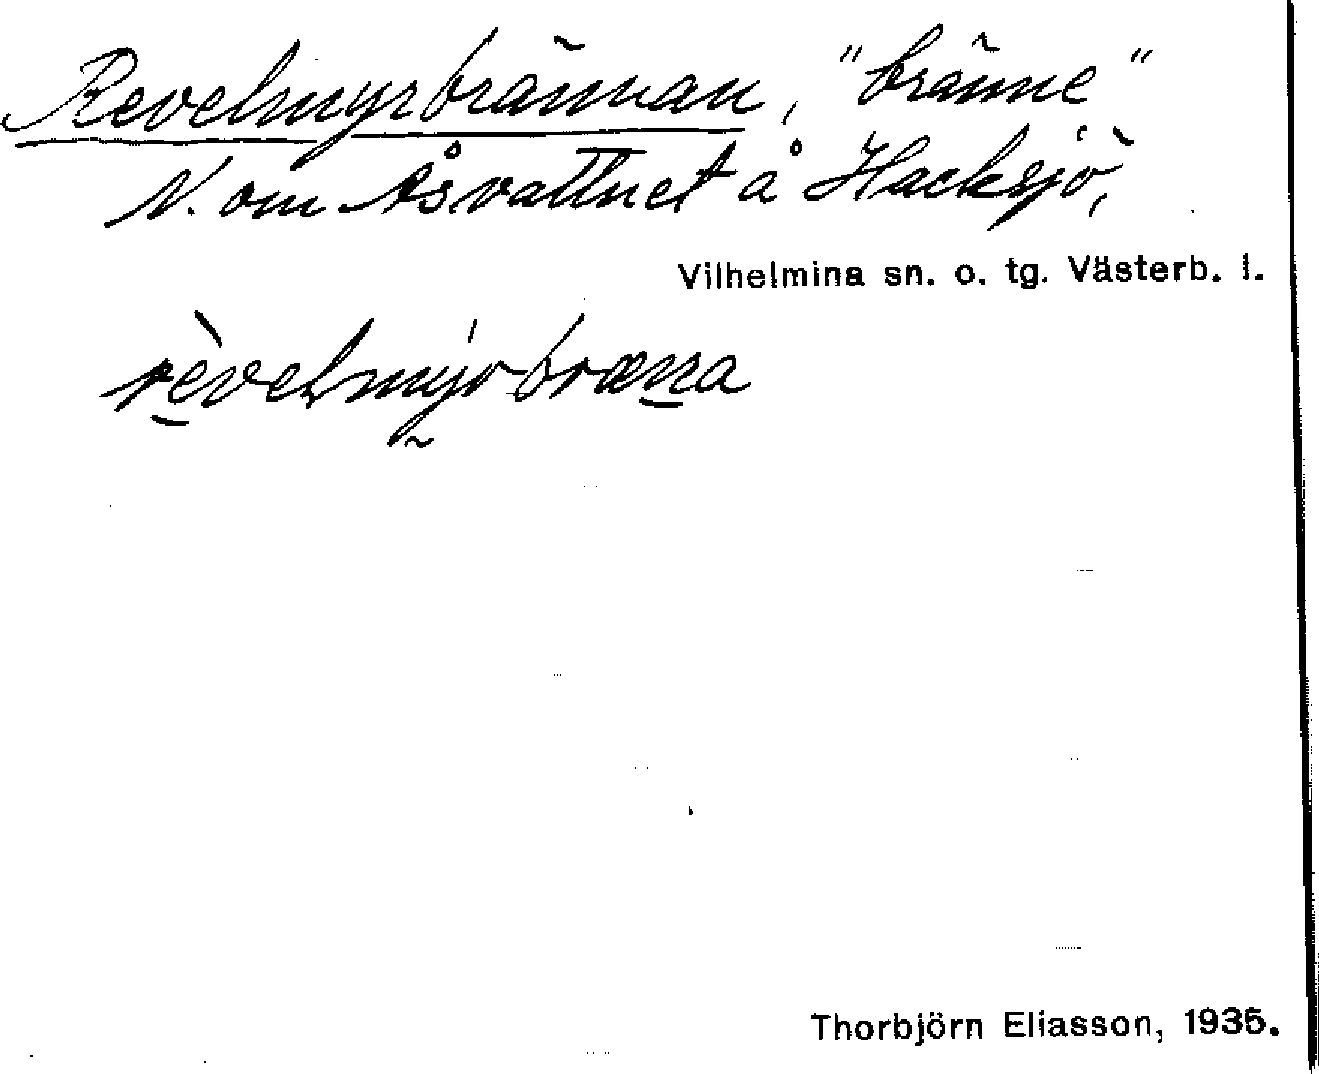 Revelmyrbrännan, "bränne"
N. om Åsvattnet å Hacksjö,
Vilhelmina sn. o. tg. Västerb. l.
rèvelmýrbræna
Thorbjörn Eliasson, 1935.